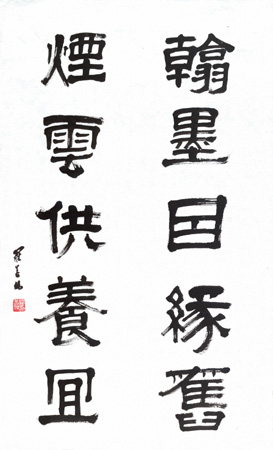 翰墨因緣舊
煙雲供養宜